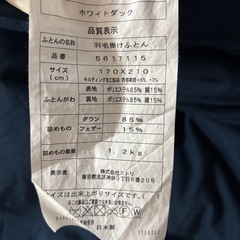 ホワイトダック
品質表示
ふとんの名称 羽毛掛けふとん
品番 5617115
サイズ(cm) 170X210
キルティング加工製品 許容範囲 +5%、-3%
ふとんがわ 表地 ポリエステル85% 綿15%
裏地 ポリエステル85% 綿15%
詰めもの ダウン 85%
フェザー 15%
詰めもの重量 1.2kg
表示者 株式会社ニトリ
東京都北区神谷3丁目6番20号
サイズは出来上がりサイズです
日本製